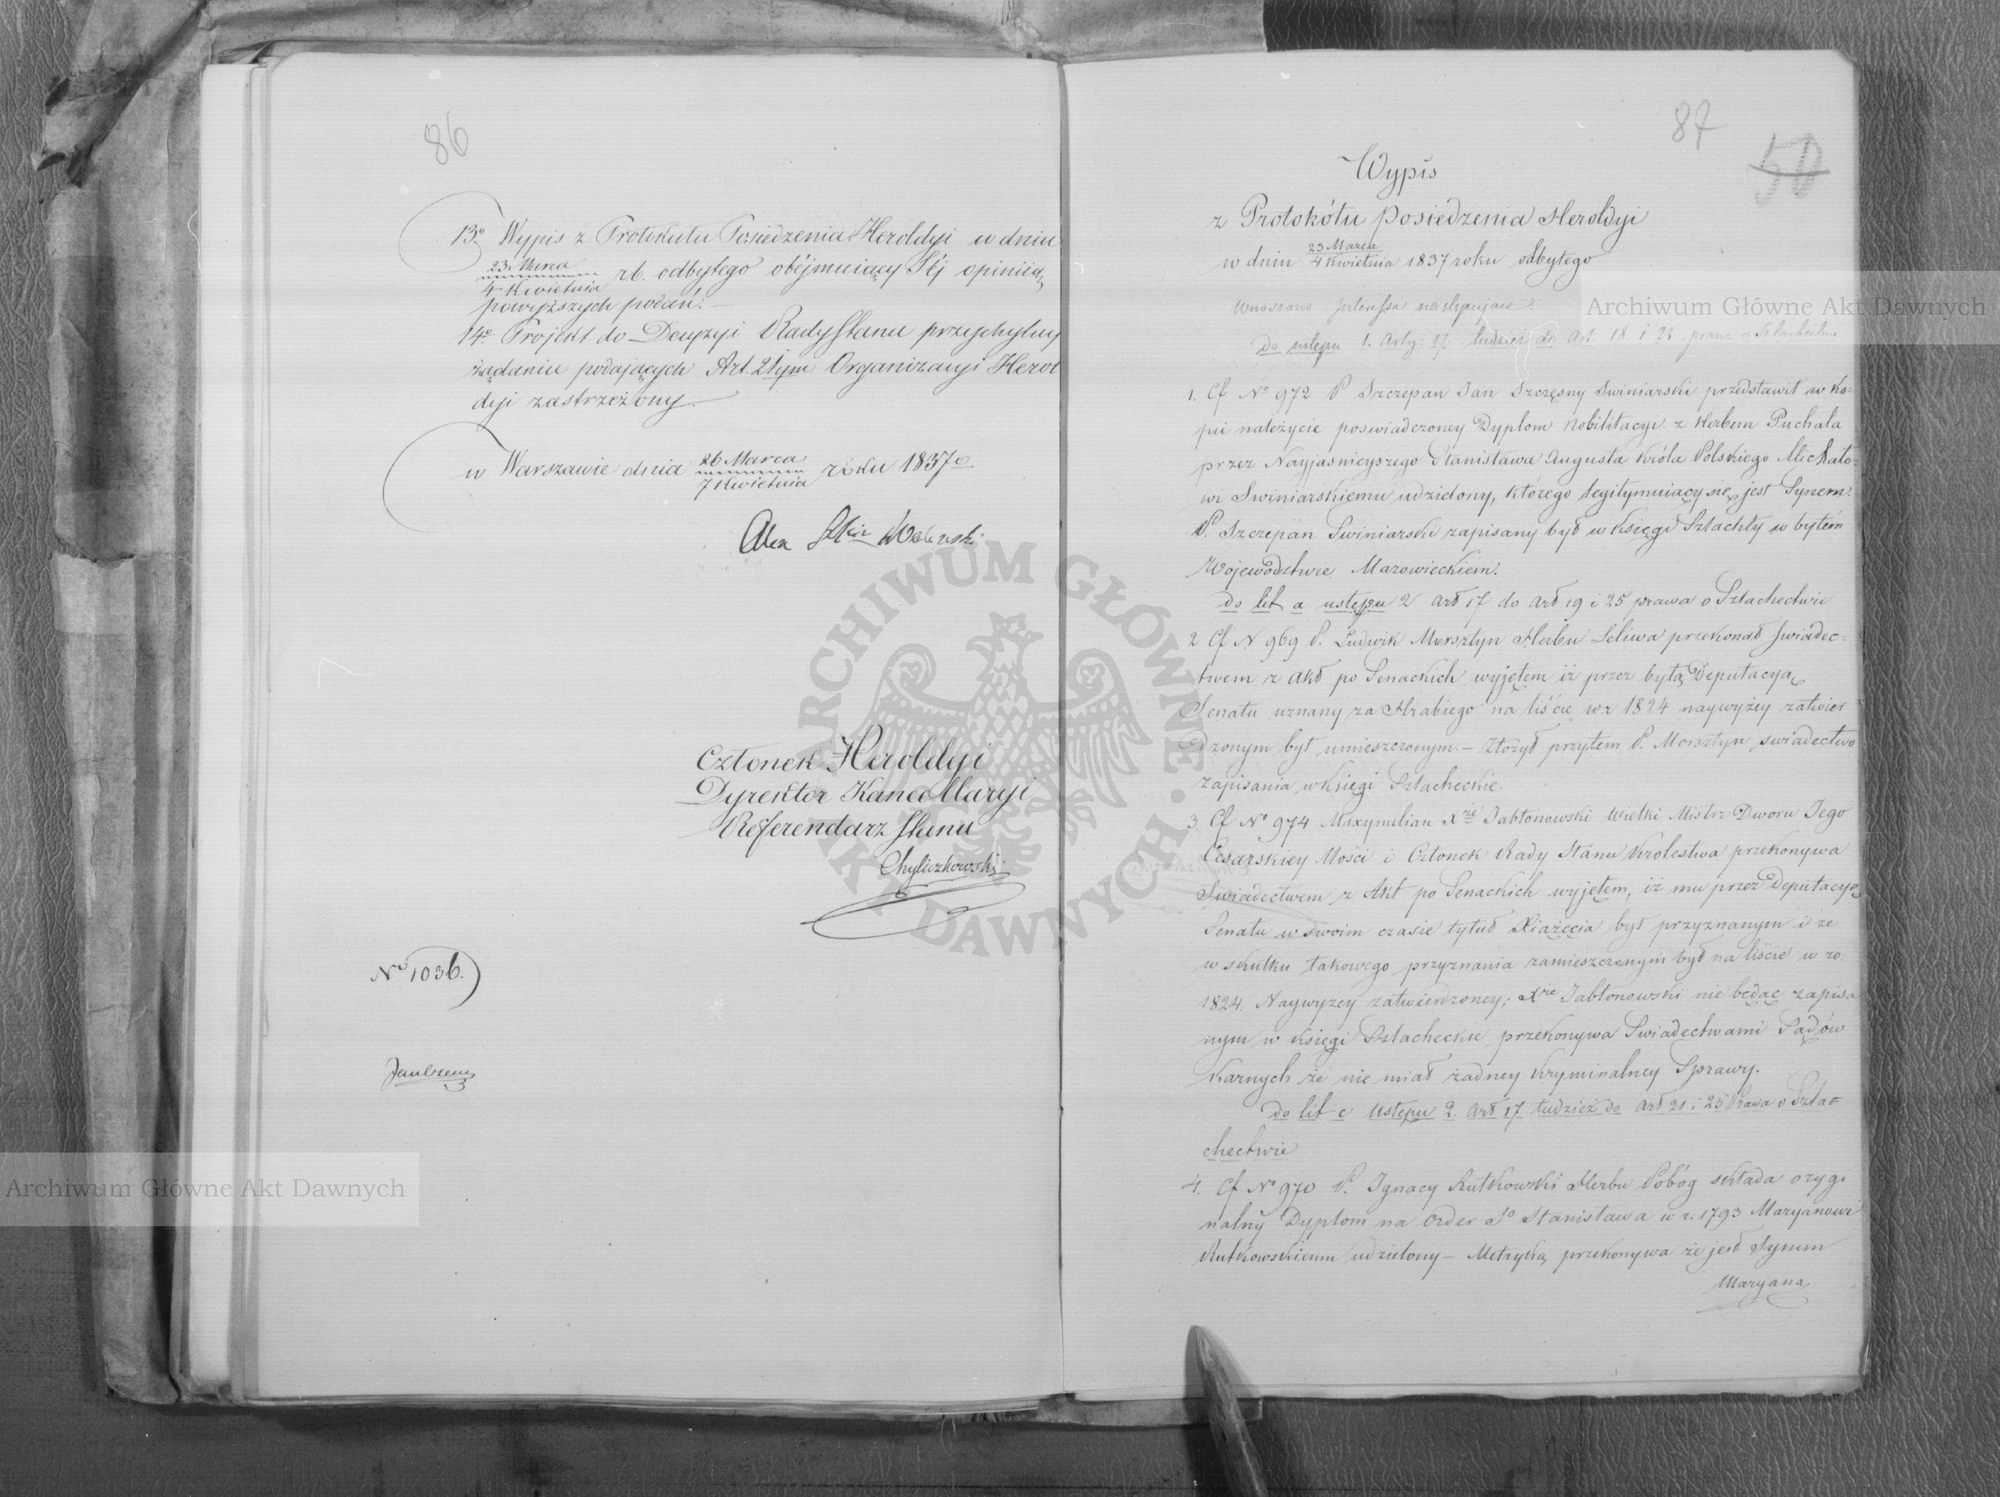 86
13º Wypis z Protokułu Posiedzenia Heroldyi w dniu
23 Marca
4 Kwietnia
rb. odbytego obejmuiący Jéj opiniią
powyższych podań. —
14º Projekt do Decyzyi Rady Stanu przychylny
żądaniu podających Art. 21ym Organizacyi Herol
dyi zastrzeżony.
w Warszawie dnia 26 Marca
7 Kwietnia
roku 1837º
Alex Walewski
Członek Heroldyi
Dyrektor Kancellaryi
Referendarz Stanu
Chyliczkowski
Nº 1036.
87
50
Wypis
z Protokółu Posiedzenia Heroldyi
w dniu 23 Marca
4 Kwietnia
1837 roku odbytego
Wnoszono Interessa następujące
Do ustępu 1. Arty: 17. tudzież do Art. 18 i 26 prawa o Szlachectwie
1. Cf Nº 972 P. Szczepan Jan Szczęsny Swiniarski przedstawił w ko-
pii należycie poswiadczoney Dyplom Nobilitacyi z Herbem Puchała
przez Nayjasnieyszego Stanisława Augusta Króla Polskiego Michało-
wi Swiniarskiemu udzielony, którego legitymuiący się jest Synem.
P. Szczepan Swiniarski zapisany był w księgi Szlachty w byłém
Województwie Mazowieckiem.
do lit a ustępu 2 art 17 do art 19 i 25 prawa o Szlachectwie
2 Cf N 969 P. Ludwik Morsztyn Herbu Leliwa przekonał swiadec-
twem z akt po Senackich wyjętem iż przez byłą Deputacyą
Senatu uznany za Hrabiego na liście w r 1824 naywyżey zatwier
dzonym był umieszczonym — Złożył przytem P. Morsztyn swiadectwo
zapisania w księgi Szlacheckie.
3. Cf Nº 974 Maxymilian Xże Jabłonowski Wielki Mistrz Dworu Jego
Cesarskiey Mości i Członek Rady Stanu Królestwa przekonywa
Swiadectwem z Akt po Senackich wyjętem, iż mu przez Deputacyę
Senatu w swoim czasie tytuł Xiążęcia był przyznanym i że
w skutku takowego przyznania zamieszczonym był na liście w ro:
1824. Naywyżey zatwierdzoney; Xże Jabłonowski nie będąc zapisa
nym w księgi Szlacheckie przekonywa Swiadectwami Sądów
Karnych że nie miał żadney Kryminalney Sprawy.
do lit c Ustępu 2. art 17 tudzież do art 21 i 25 Prawa o Szla=
chectwie
4. Cf Nº 970 P. Ignacy Rutkowski Herbu Pobóg składa orygi
nalny Dyplom na Order Sº Stanisława w r. 1793 Maryanowi
Rutkowskiemu udzielony — Metryką przekonywa że jest Synem
Maryana
Archiwum Główne Akt Dawnych
Archiwum Główne Akt Dawnych
ARCHIWUM GŁÓWNE AKT DAWNYCH